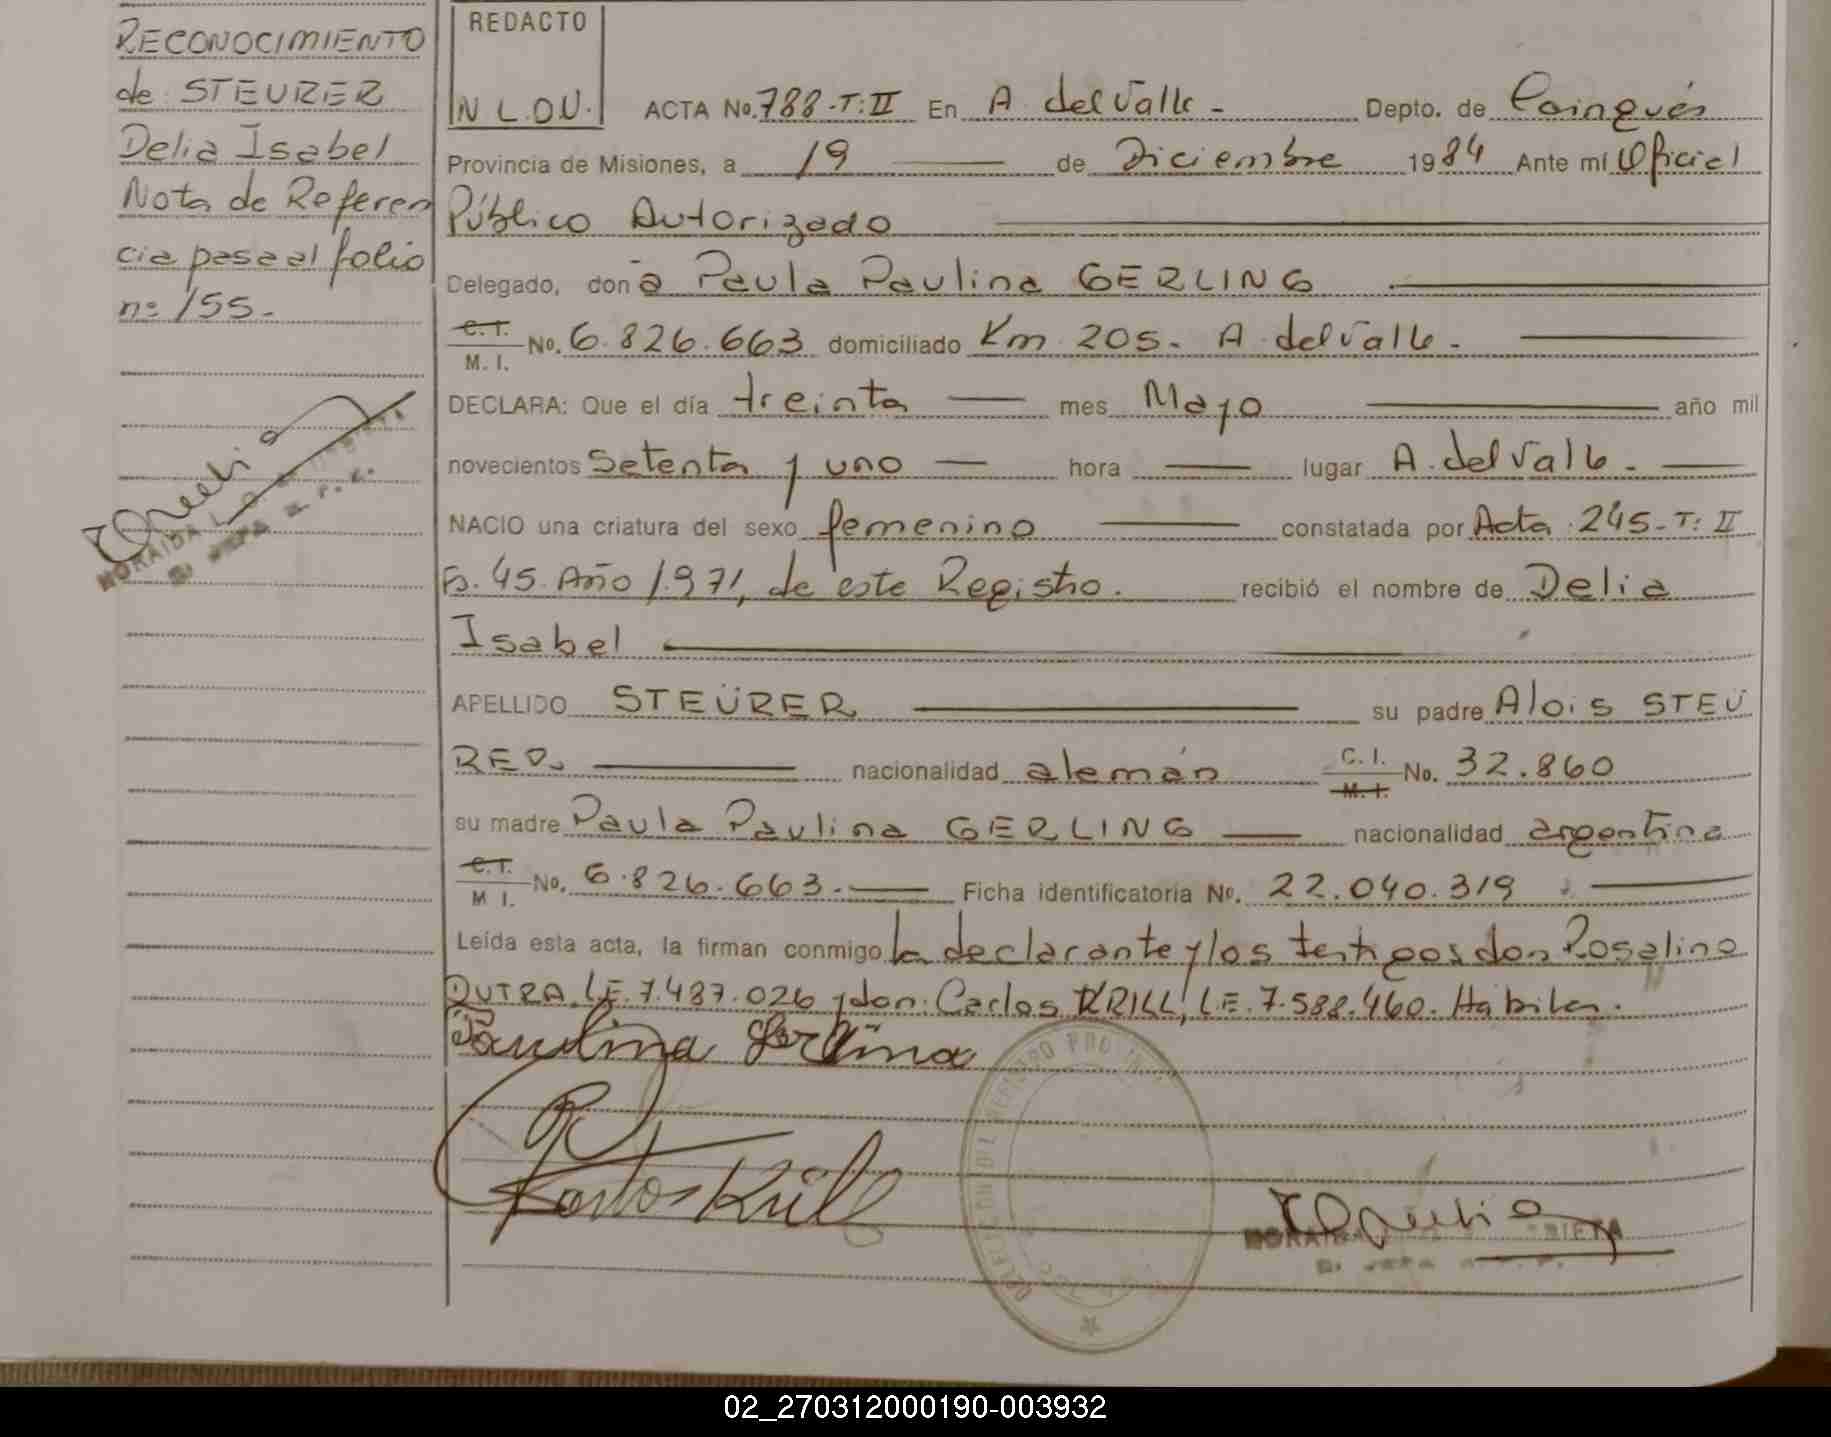 RECONOCIMIENTO
de STEURER
Delia Isabel
Nota de Referen
cia pasa al folio
nº 155.-
REDACTO
N L.O.U.
ACTA No. 788-T: II En A. del Valle - Depto. de Cainguás
Provincia de Misiones, a 19 de Diciembre 1984 Ante mí Oficial
Público Autorizado
Delegado, don a Paula Paulina GERLING
C. I. M. I. No. 6.826.663 domiciliado Km 205. A. del Valle.-
DECLARA: Que el día treinta mes Mayo año mil
novecientos Setenta y uno hora lugar A. del Valle.-
NACIO una criatura del sexo femenino constatada por Acta 245-T: II
Fº. 45. Año 1.971, de este Registro. recibió el nombre de Delia
Isabel
APELLIDO STEÜRER su padre Alois STEÜ
RER. nacionalidad alemán C. I. M. I. No. 32.860
su madre Paula Paulina GERLING nacionalidad argentina
C. I. M. I. No. 6.826.663.- Ficha identificatoria No. 22.040.319
Leída esta acta, la firman conmigo la declarante y los testigos don Rosalino
DUTRA, LE. 7.487.026 y don: Carlos KRILL, LE. 7.588.460. Hábiles.
Paulina
Carlos Krill
02_270312000190-003932